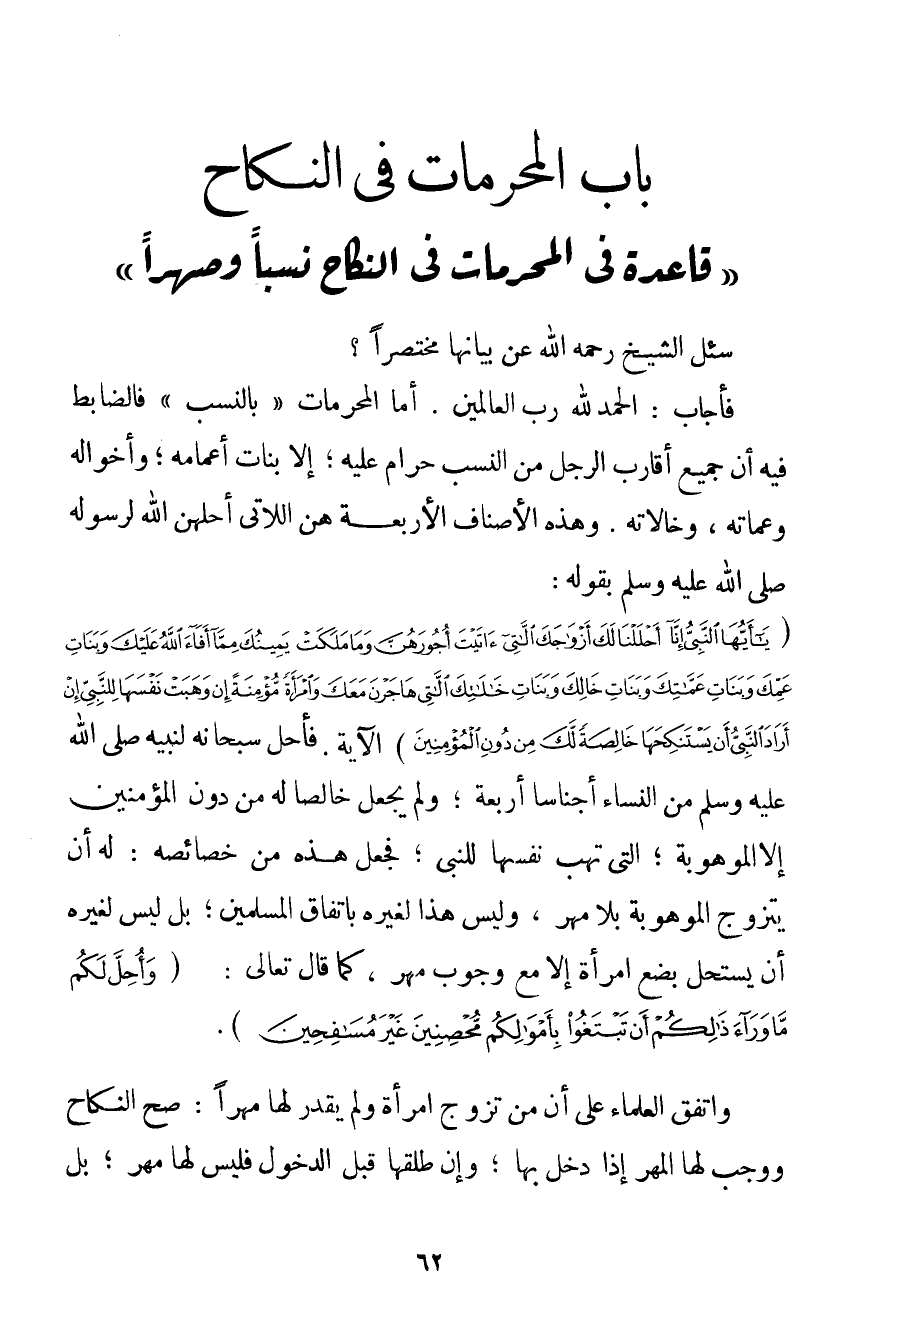 باب المحرمات فى النكاح
« قاعدة فى المحرمات فى النكاح نسباً وصهراً »
سئل الشيخ رحمه الله عن بيانها مختصراً ؟
فأجاب : الحمد لله رب العالمين . أما المحرمات « بالنسب » فالضابط
فيه أن جميع أقارب الرجل من النسب حرام عليه ؛ إلا بنات أعمامه ؛ وأخواله
وعماته ، وخالاته . وهذه الأصناف الأربعة هن اللاتى أحلهن الله لرسوله
صلى الله عليه وسلم بقوله :
( يَٰٓأَيُّهَا ٱلنَّبِىُّ إِنَّآ أَحْلَلْنَا لَكَ أَزْوَٰجَكَ ٱلَّٰتِىٓ ءَاتَيْتَ أُجُورَهُنَّ وَمَا مَلَكَتْ يَمِينُكَ مِمَّآ أَفَآءَ ٱللَّهُ عَلَيْكَ وَبَنَاتِ
عَمِّكَ وَبَنَاتِ عَمَّٰتِكَ وَبَنَاتِ خَالِكَ وَبَنَاتِ خَٰلَٰتِكَ ٱلَّٰتِى هَاجَرْنَ مَعَكَ وَٱمْرَأَةً مُّؤْمِنَةً إِن وَهَبَتْ نَفْسَهَا لِلنَّبِىِّ إِنْ
أَرَادَ ٱلنَّبِىُّ أَن يَسْتَنكِحَهَا خَالِصَةً لَّكَ مِن دُونِ ٱلْمُؤْمِنِينَ ) الآية . فأحل سبحانه لنبيه صلى الله
عليه وسلم من النساء أجناسا أربعة ؛ ولم يجعل خالصا له من دون المؤمنين
إلا الموهوبة ؛ التى تهب نفسها للنبى ؛ فجعل هذه من خصائصه : له أن
يتزوج الموهوبة بلا مهر ، وليس هذا لغيره باتفاق المسلمين ؛ بل ليس لغيره
أن يستحل بضع امرأة إلا مع وجوب مهر ، كما قال تعالى : ( وَأُحِلَّ لَكُم
مَّا وَرَآءَ ذَٰلِكُمْ أَن تَبْتَغُوا۟ بِأَمْوَٰلِكُم مُّحْصِنِينَ غَيْرَ مُسَٰفِحِينَ ) .
واتفق العلماء على أن من تزوج امرأة ولم يقدر لها مهراً : صح النكاح
ووجب لها المهر إذا دخل بها ؛ وإن طلقها قبل الدخول فليس لها مهر ؛ بل
٦٢